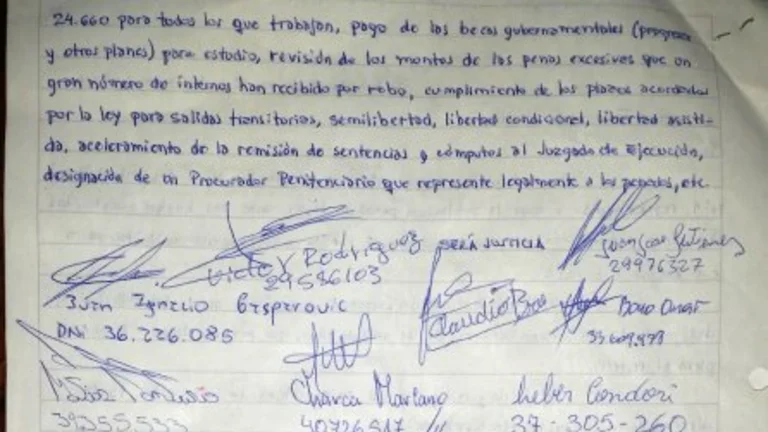 24.660 para todos los que trabajan, pago de las becas gubernamentales (progresar
y otros planes) para estudio, revisión de los montos de las penas excesivas que un
gran número de internos han recibido por robo, cumplimiento de los plazos acordados
por la ley para salidas transitorias, semilibertad, libertad condicional, libertad asisti-
da, aceleramiento de la remisión de sentencias y cómputos al Juzgado de Ejecución,
designación de un Procurador Penitenciario que represente legalmente a los penados, etc.
SERÁ JUSTICIA
Victor Rodriguez
29.586103
Gutierrez
29976327
Juan Ignacio Gasparovic
DNI 36.226.085
Claudio
Omar
Charca Mariano
heber Condori
39355533
40726517
37-305-260